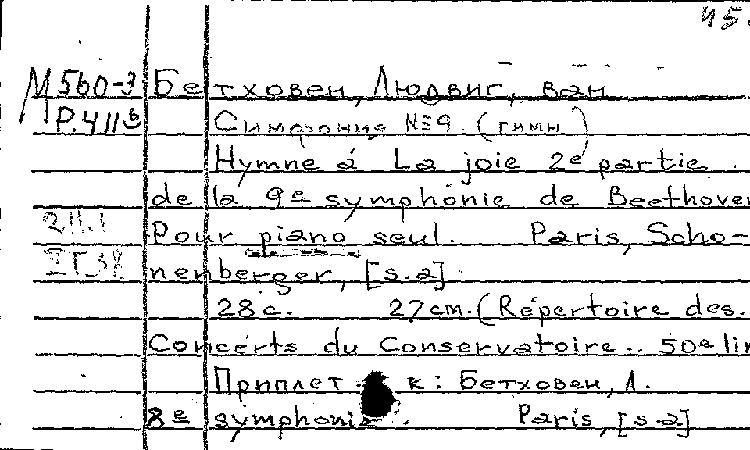 45.
М560-3 Бетховен, Людвиг, ван
Р.411б Симфония №9. (гимн)
Hymne á La joie 2e partie.
de la 9e symphonie de Beethoven
Pour piano seul. Paris, Scho-
nenberger, [s.a]
28 с. 27 cm. (Répertoire des.
Concerts du Conservatoire.. 50e lin
Приплет к: Бетховен, Л.
8e symphonie. Paris, [s.a]